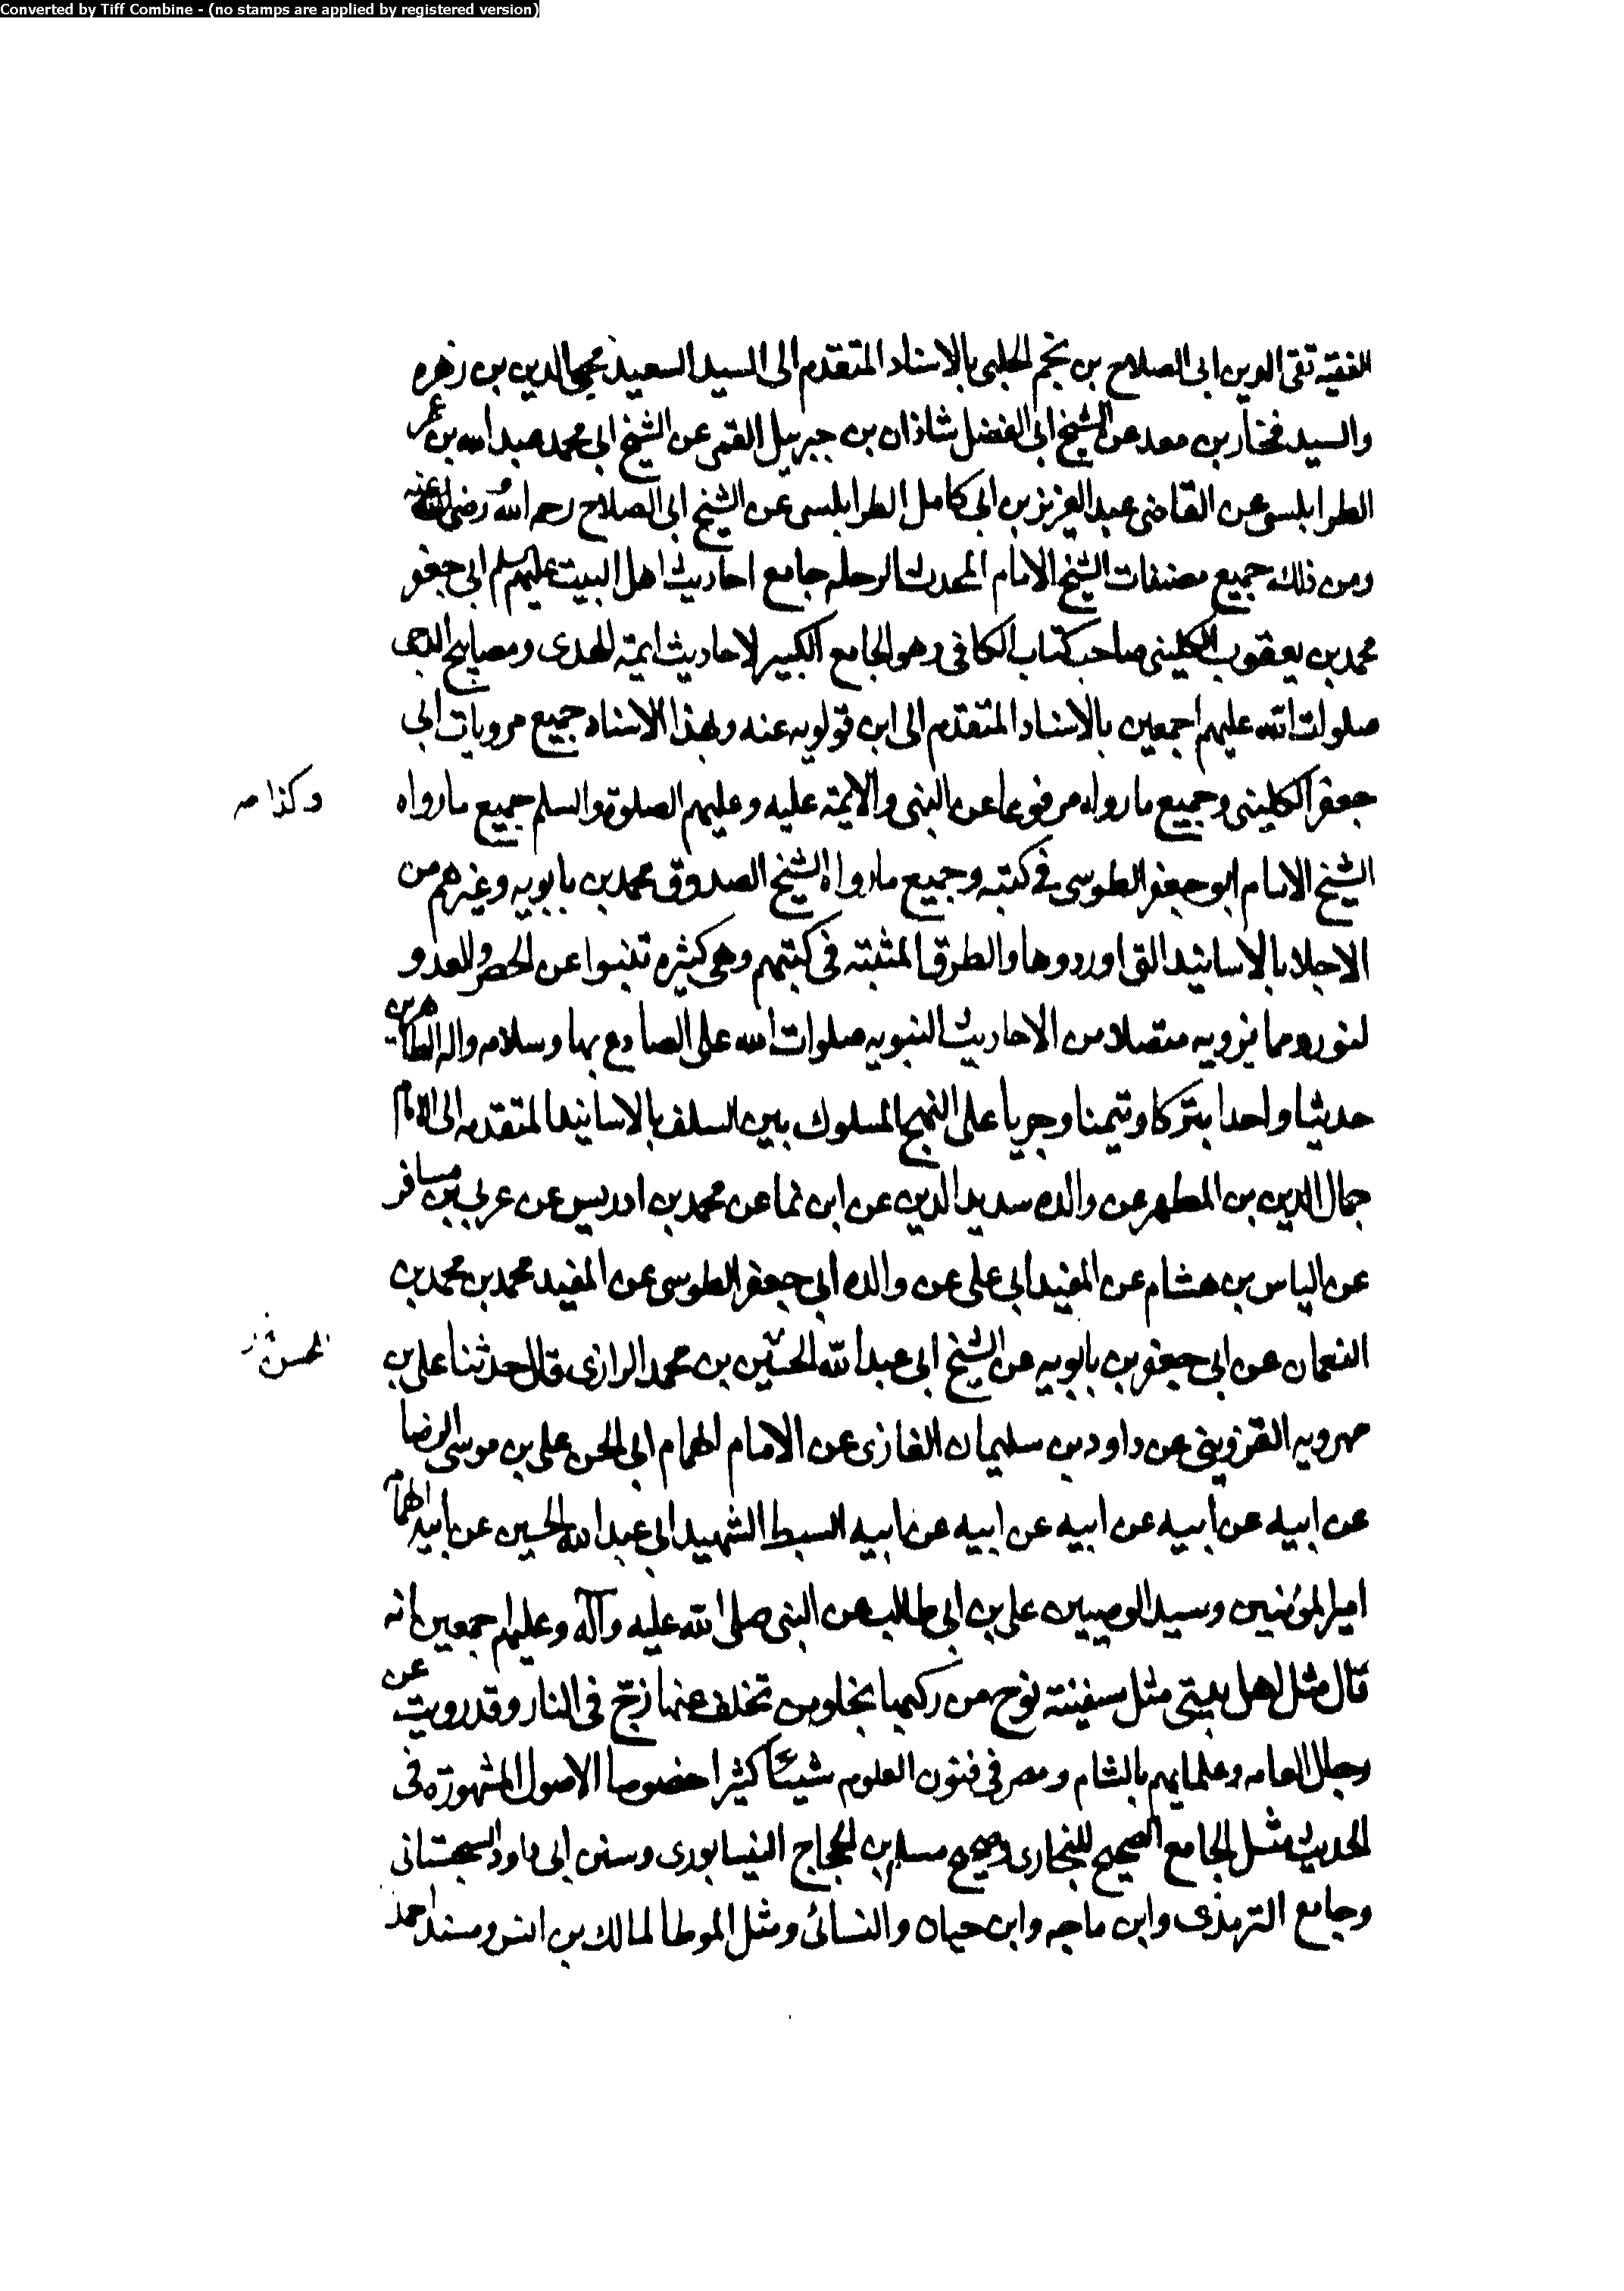 Converted by Tiff Combine - (no stamps are applied by registered version)
الفقيه تقى الدين ابى الصلاح بن نجم الحلبى بالاسناد المتقدم الى السيد السعيد محيى الدين بن زهره
والسيد فخار بن معد عن الشيخ ابى الفضل شاذان بن جبرييل القمى عن الشيخ ابى محمد عبد الله بن عمر
الطرابلسى عن القاضى عبد العزيز بن ابى كامل الطرابلسى عن الشيخ ابى الصلاح رحمه الله رضى الله عنه
ومن ذلك جميع مصنفات الشيخ الامام المحدث الرحله جامع احاديث اهل البيت عليهم السلم ابى جعفر
محمد بن يعقوب الكلينى صاحب كتاب الكافى وهو الجامع الكبير لاحاديث ايمة الهدى ومصابيح الدجى
صلوات الله عليهم اجمعين بالاسناد المتقدم الى ابن قولويه عنه وبهذا الاسناد جميع مرويات ابى
جعفر الكلينى وجميع ما رواه مرفوعا عن النبى والايمة عليه وعليهم الصلوة والسلم جميع ما رواه
وكذا
الشيخ الامام ابو جعفر الطوسى فى كتبه وجميع ما رواه الشيخ الصدوق محمد بن بابويه وغيرهم من
الاجلا بالاسانيد التى اوردوها والطرق المثبتة فى كتبهم وهى كثيرة تنبوا عن الحصر والعد و
لنورد مما نرويه متصلا من الاحاديث النبويه صلوات الله على الصادع بها وسلامه واله الطاهرين
حديثا واحدا تبركا وتيمنا وجريا على النهج المسلوك بين السلف بالاسانيد المتقدمه الى الامام
جمال الدين بن المطهر عن والده سديد الدين عن ابن نما عن محمد بن ادريس عن عربى بن مسافر
عن الياس بن هشام عن المفيد ابى على عن والده ابى جعفر الطوسى عن المفيد محمد بن محمد بن
النعمان عن ابى جعفر بن بابويه عن الشيخ ابى عبد الله الحسين بن محمد الرازى قال حدثنا على بن
الحسن
مهرويه القزوينى عن داود بن سليمان الغازى عن الامام الهمام ابى الحسن على بن موسى الرضا
عن ابيه عن ابيه عن ابيه عن ابيه عن ابيه السبط الشهيد ابى عبد الله الحسين عن ابيه الهمام
امير المؤمنين وسيد الوصيين على بن ابى طالب عن النبى صلى الله عليه وآله وعليهم اجمعين انه
قال مثل اهل بيتى مثل سفينة نوح من ركبها نجا ومن تخلف عنها زج فى النار وقد رويت عن
رجال العامه وعلمايهم بالشام ومصر فى فنون العلوم شيئا كثيرا خصوصا الاصول المشهورة فى
الحديث مثل الجامع الصحيح للبخارى وصحيح مسلم بن الحجاج النيسابورى وسنن ابى داود السجستانى
وجامع الترمذى وابن ماجه وابن حيان والنسائى ومثل الموطا لمالك بن انس ومسند احمد